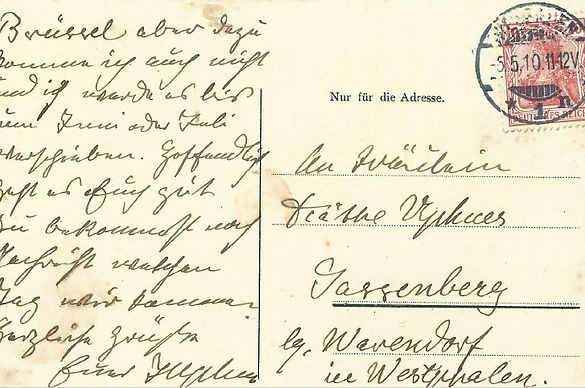 Brüssel aber dazu
komme ich auch nicht
und ich werde es bis
zum Juni oder Juli
verschieben. Hoffentlich
geht es Euch gut
Du bekommst noch
Nachricht welchen
Tag wir kommen
Herzliche Grüße
Euer
Nur für die Adresse.
-5.5.10.11-12V.
* 1n
DEUTSCHES REICH
An Fräulein
Käthe
Sassenberg
bg. Warendorf
in Westphalen.